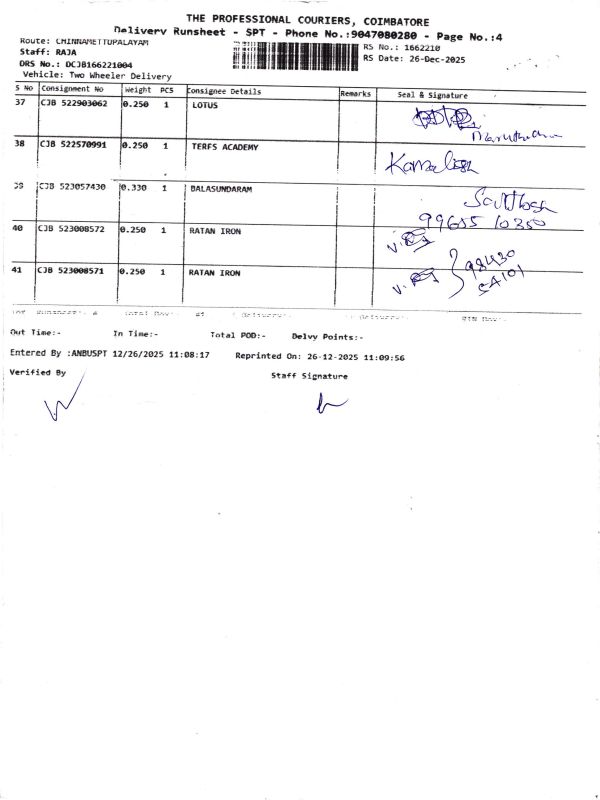 THE PROFESSIONAL COURIERS, COIMBATORE
Delivery Runsheet - SPT - Phone No.:9047080280 - Page No.:4
Route: CHINNAMETTUPALAYAM
RS No.: 1662210
Staff: RAJA
RS Date: 26-Dec-2025
DRS No.: DCJB166221004
Vehicle: Two Wheeler Delivery
S No Consignment No Weight PCS Consignee Details Remarks Seal & Signature
37 CJB 522903062 0.250 1 LOTUS
38 CJB 522570991 0.250 1 TERFS ACADEMY Kamalesh
39 CJB 523057430 0.330 1 BALASUNDARAM Santhosh
99655 10350
40 CJB 523008572 0.250 1 RATAN IRON
41 CJB 523008571 0.250 1 RATAN IRON 98430
Out Time:- In Time:- Total POD:- Delvy Points:-
Entered By :ANBUSPT 12/26/2025 11:08:17 Reprinted On: 26-12-2025 11:09:56
Verified By Staff Signature